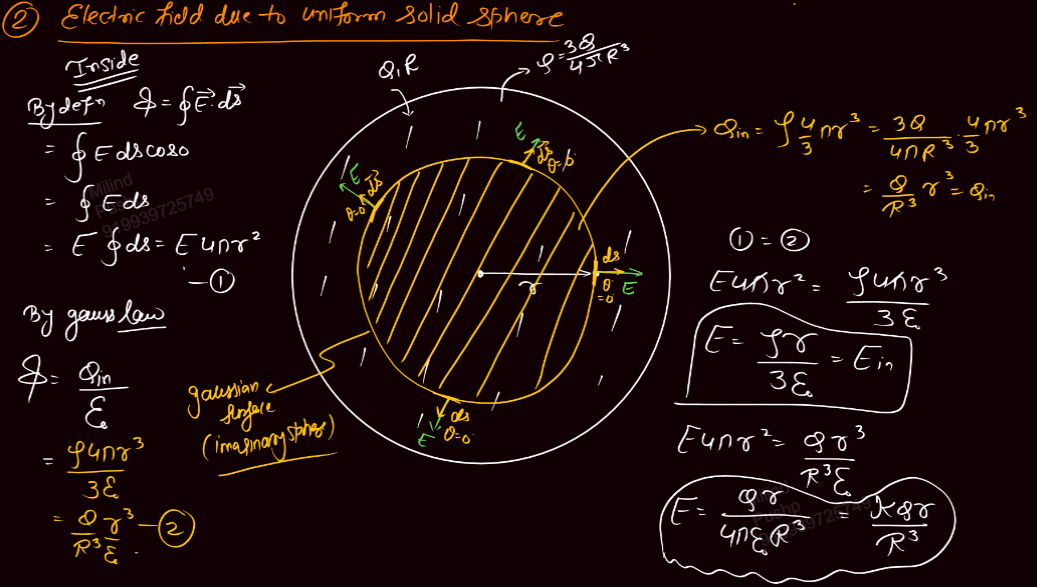 ② Electric field due to uniform solid sphere
Inside
By defn Φ = ∮E⃗.ds⃗
= ∮E ds cos0
= ∮E ds
= E ∮ds = E4πr²
—①
By gauss law
Φ = Qin/ε₀
= ρ4πr³/3ε₀
= Q/R³ r³/ε₀ —②
Q,R
ρ = 3Q/4πR³
E ds⃗ θ=0
E ds⃗ θ=0
ds E θ=0
r
E ds θ=0
gaussian
surface
(imaginary sphere)
Qin = ρ 4/3 πr³ = 3Q/4πR³ . 4/3 πr³
= Q/R³ r³ = Qin
① = ②
E4πr² = ρ4πr³/3ε₀
E = ρr/3ε₀ = Ein
E4πr² = Qr³/R³ε₀
E = Qr/4πε₀R³ = KQr/R³
Milind
Pushp
919939725749